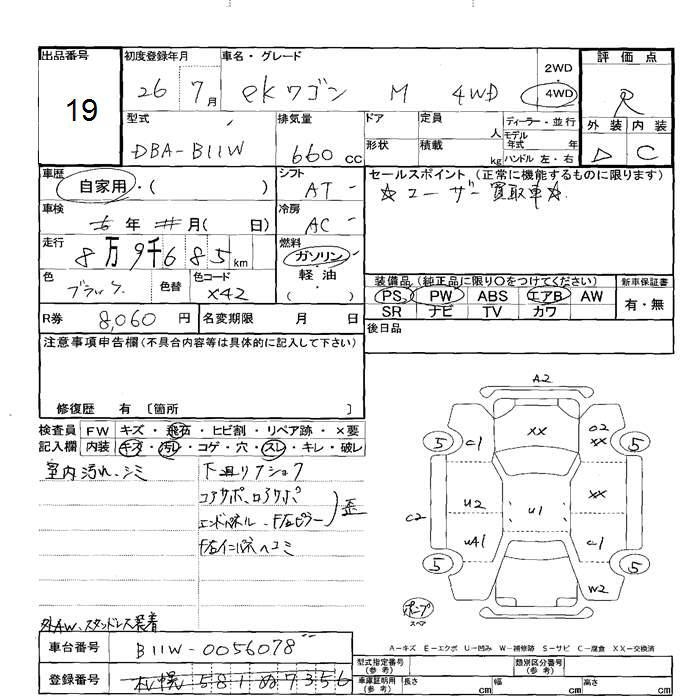 出品番号 初度登録年月 車名・グレード 評価点
19 26 7月 ekワゴン M 4WD 2WD 4WD R
型式 排気量 ドア 定員 人 ディーラー・並行 外装 内装
DBA-B11W 660cc 形状 積載 kg モデル年式 年 ハンドル 左・右 △ C
車歴 シフト セールスポイント(正常に機能するものに限ります)
自家用・( ) AT ☆ユーザー買取車☆
車検 年 月( 日) 冷房 AC
走行 8万9千685km 燃料 ガソリン・軽油 ( )
色 ブラック 色替 色コード X42
装備品(純正品に限り○をつけてください) 新車保証書
PS PW ABS エアB AW 有・無
SR ナビ TV カワ
R券 8,060円 名変期限 月 日 後日品
注意事項申告欄(不具合内容等は具体的に記入して下さい)
修復歴 有〔箇所 〕
検査員 FW キズ・飛石・ヒビ割・リペア跡・×要
記入欄 内装 キズ・汚レ・コゲ・穴・スレ・キレ・破レ
室内汚れ、シミ 下廻リアショク
コアサポ、ロアサポ
エンドパネル、F左ピラー 歪
F左インパネヘコミ
外AW、スタッドレス装着
A2
5 C1 XX C2 XX 5
C2 U2 U1 XX
UA1 C1
5 5
W2
ポンプ
スペア
A-キズ E-エクボ U-凹み W-補修跡 S-サビ C-腐食 XX-交換済
車台番号 B11W-0056078
登録番号 札幌 581 ぬ 7356
型式指定番号(参考) 類別区分番号(参考)
車庫証明用(参考) 長さ cm 幅 cm 高さ cm